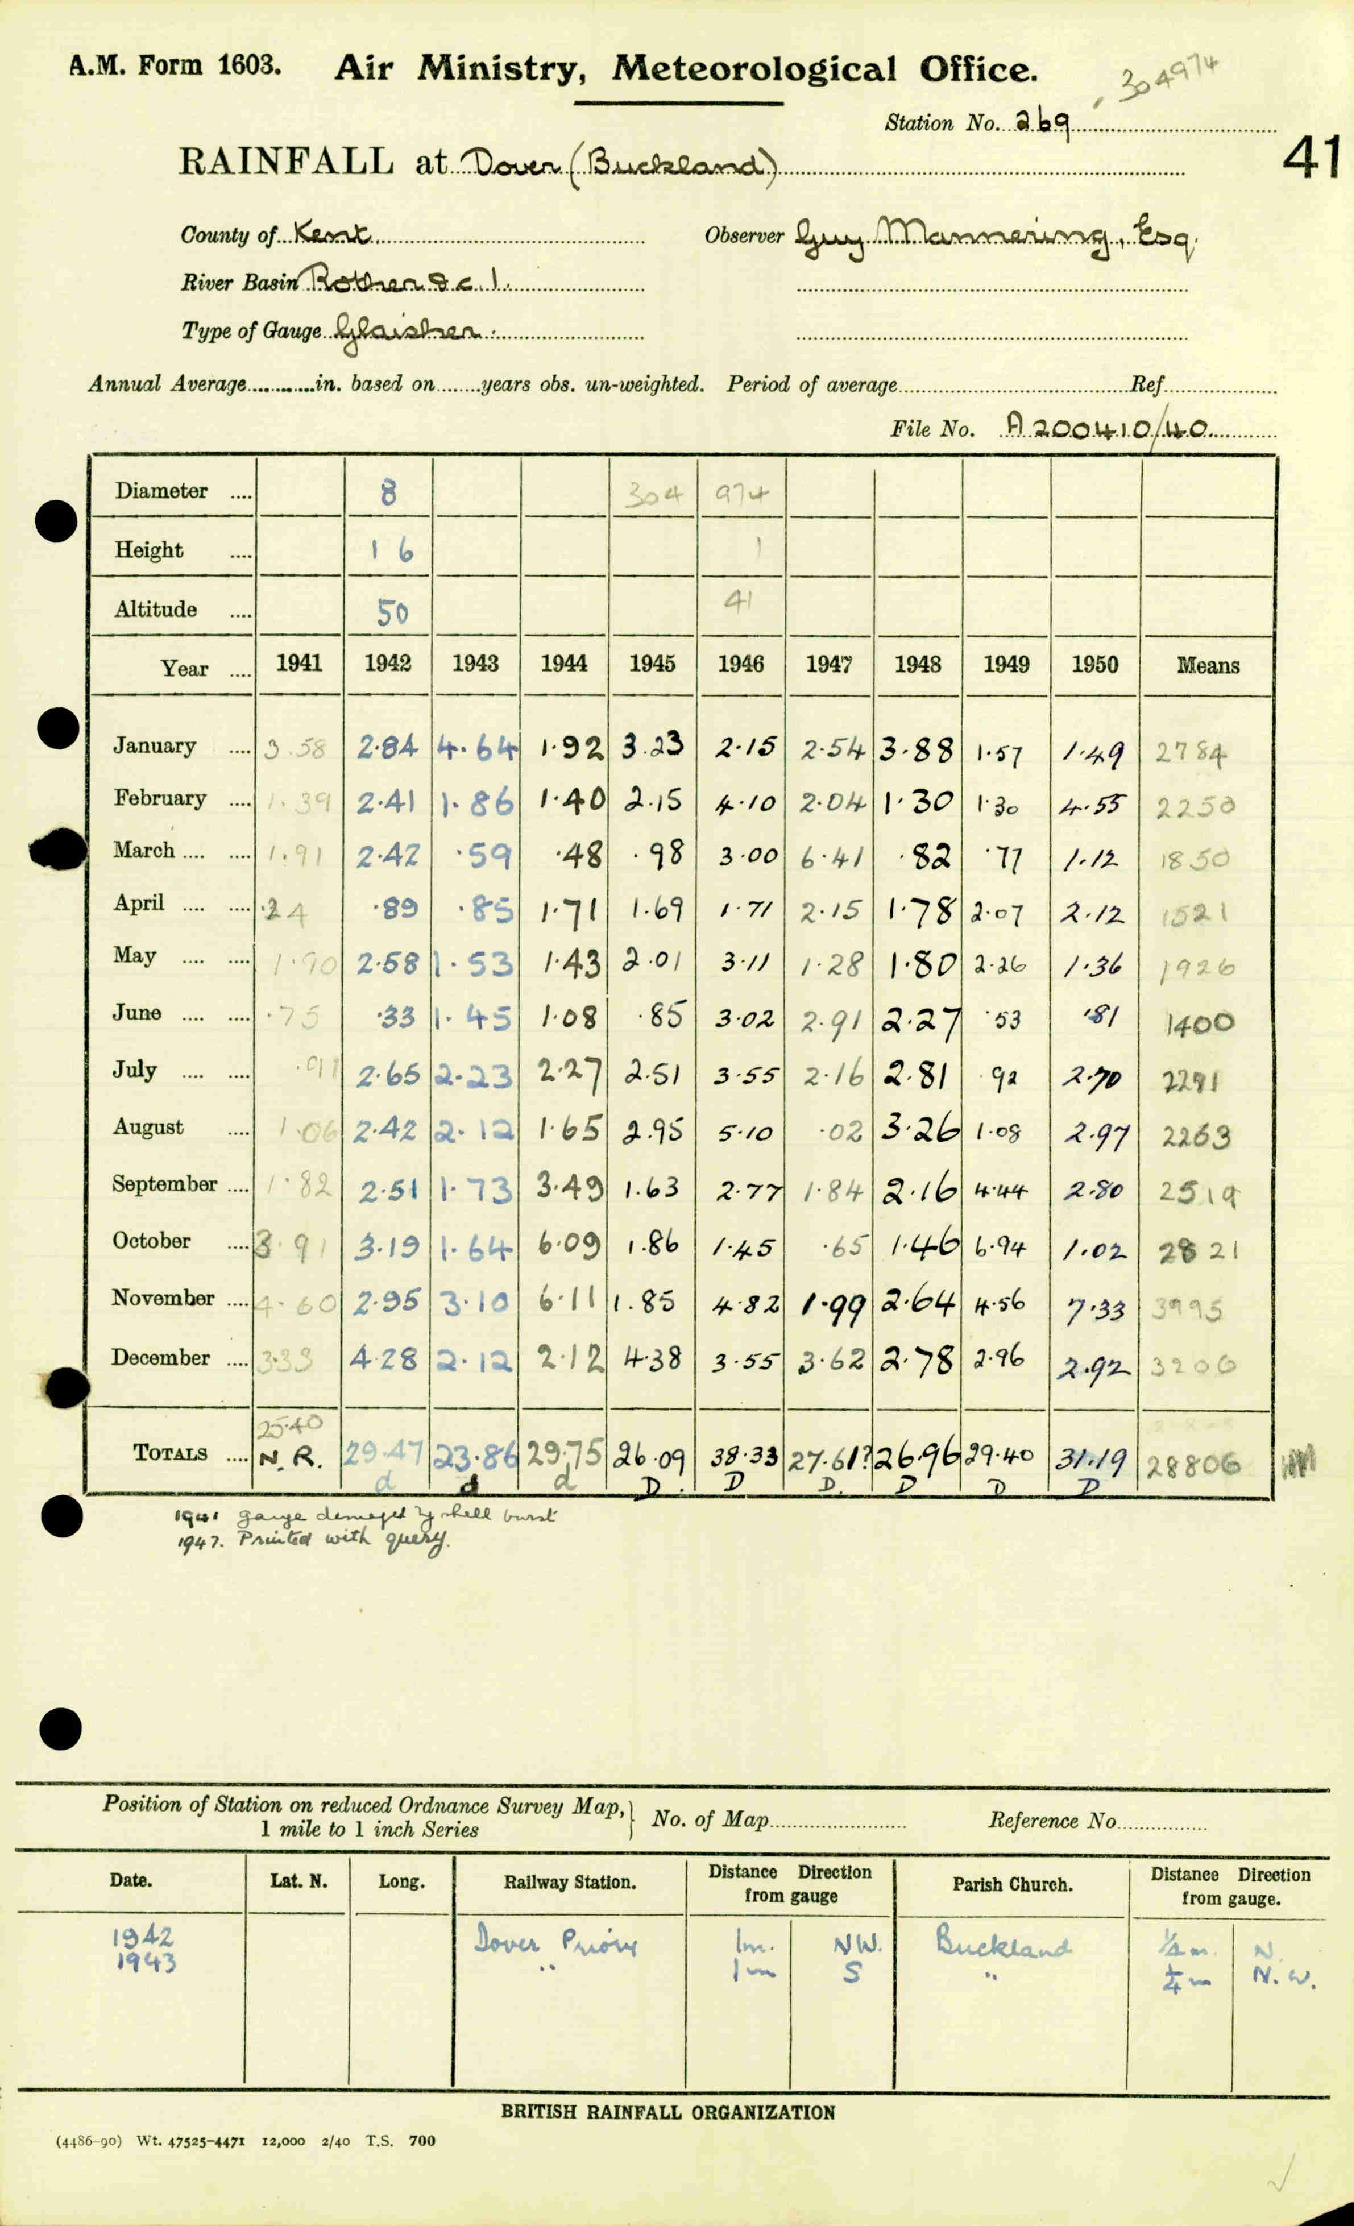 A.M. Form 1603. Air Ministry, Meteorological Office.
304974
Station No. 269
41
RAINFALL at Dover (Buckland)
County of Kent Observer Guy Mannering, Esq.
River Basin Rother &c. 1.
Type of Gauge Glaisher.
Annual Average............in. based on........years obs. un-weighted. Period of average........Ref........
File No. A200410/40
Diameter .... 8 304 974
Height .... 1 6 1
Altitude .... 50 41
Year .... 1941 1942 1943 1944 1945 1946 1947 1948 1949 1950 Means
January .... 3.58 2.84 4.64 1.92 3.23 2.15 2.54 3.88 1.57 1.49 2784
February .... 1.39 2.41 1.86 1.40 2.15 4.10 2.04 1.30 1.30 4.55 2250
March .... .... 1.91 2.42 .59 .48 .98 3.00 6.41 .82 .77 1.12 1850
April .... .... .24 .89 .85 1.71 1.69 1.71 2.15 1.78 2.07 2.12 1521
May .... .... 1.90 2.58 1.53 1.43 2.01 3.11 1.28 1.80 2.26 1.36 1926
June .... .... .75 .33 1.45 1.08 .85 3.02 2.91 2.27 .53 .81 1400
July .... .... .91 2.65 2.23 2.27 2.51 3.55 2.16 2.81 .92 2.70 2271
August .... 1.06 2.42 2.12 1.65 2.95 5.10 .02 3.26 1.08 2.97 2263
September .... 1.82 2.51 1.73 3.49 1.63 2.77 1.84 2.16 4.44 2.80 2519
October .... 3.91 3.19 1.64 6.09 1.86 1.45 .65 1.46 6.94 1.02 2821
November .... 4.60 2.95 3.10 6.11 1.85 4.82 1.99 2.64 4.56 7.33 3995
December .... 3.33 4.28 2.12 2.12 4.38 3.55 3.62 2.78 2.96 2.92 3206
25.40
TOTALS .... N.R. 29.47 23.86 29.75 26.09 38.33 27.61? 26.96 29.40 31.19 28806
d d d D. D D. D D D
1941 gauge damaged by shell burst
1947. Printed with query.
Position of Station on reduced Ordnance Survey Map, 1 mile to 1 inch Series } No. of Map........ Reference No........
Date. Lat. N. Long. Railway Station. Distance Direction from gauge Parish Church. Distance Direction from gauge.
1942 Dover Priory 1m. NW. Buckland ¼ m. N.
1943 " 1m S " ¼ m N.W.
BRITISH RAINFALL ORGANIZATION
(4486-90) Wt. 47525-4471 12,000 2/40 T.S. 700